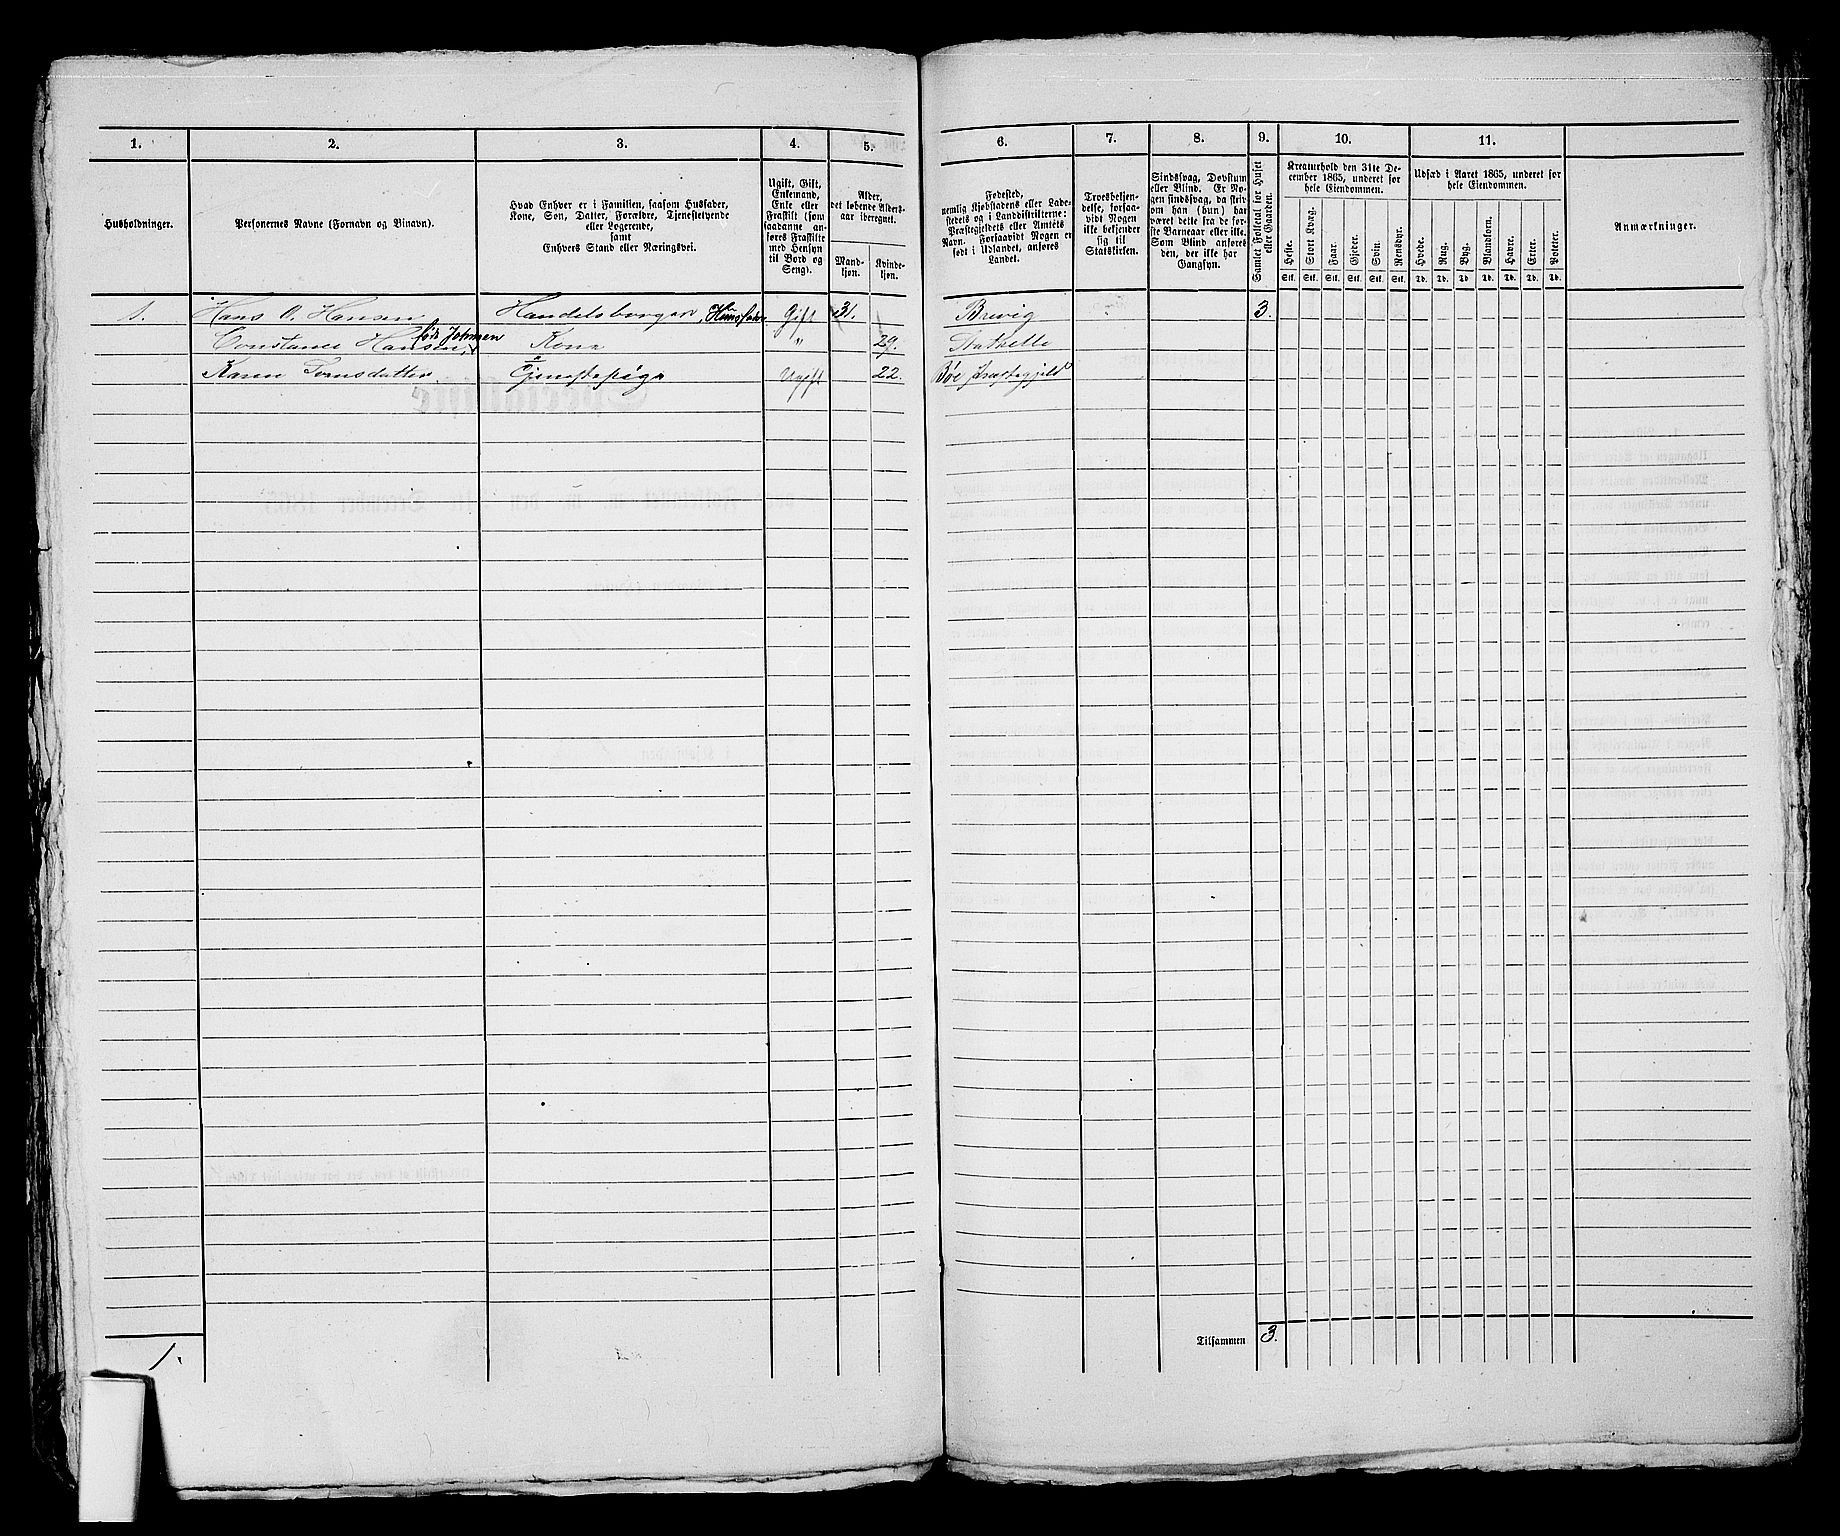 1.
2.
3.
4.
5.
6.
7.
8.
9.
10.
11.
Husholdninger.
Personernes Navne (Fornavn og Binavn).
Hvad Enhver er i Familien, saasom Husfader,
Kone, Søn, Datter, Forældre, Tjenestetyende
eller Logerende,
samt
Enhvers Stand eller Næringsvei.
Ugift, Gift,
Enkemand,
Enke eller
Fraskilt (som
saadanne an-
føres Fraskilte
med Hensyn
til Bord og
Seng).
Alder,
det løbende Alders-
aar iberegnet.
Mand-
kjøn.
Kvinde-
kjøn.
Fødested,
nemlig Kjøbstadens eller Lade-
stedets og i Landdistrikterne:
Præstegjeldets eller Amtets
Navn. Forsaavidt Nogen er
født i Udlandet, anføres
Landet.
Troesbekjen-
delse, forsaa-
vidt Nogen
ikke bekjender
sig til
Statskirken.
Sindssvag, Døvstum
eller Blind. Er No-
gen sindssvag, da skriv
om han (hun) har
været dette fra de før-
ste Barneaar eller ikke.
Som Blind anføres
den, der ikke har
Gangsyn.
Samlet Folketal for Huset
eller Gaarden.
Kreaturhold den 31te De-
cember 1865, underet for
hele Eiendommen.
Heste.
Stort Kvæg.
Faar.
Gjeder.
Svin.
Rensdyr.
Stk. Stk. Stk. Stk. Stk. Stk.
Udsæd i Aaret 1865, underet for
hele Eiendommen.
Hvede.
Rug.
Byg.
Blandkorn.
Havre.
Erter.
Poteter.
Td. Td. Td. Td. Td. Td. Td.
Anmærkninger.
1. Hans O. Hansen Handelsborger, Husfader Gift 31. Brevig 3.
Constance Hansen, født Johnsen Kone " 29. Stathelle
Karen Tormsdatter Tjenestepige Ugift 22. Bøe Præstegjeld
1.
Tilsammen 3.